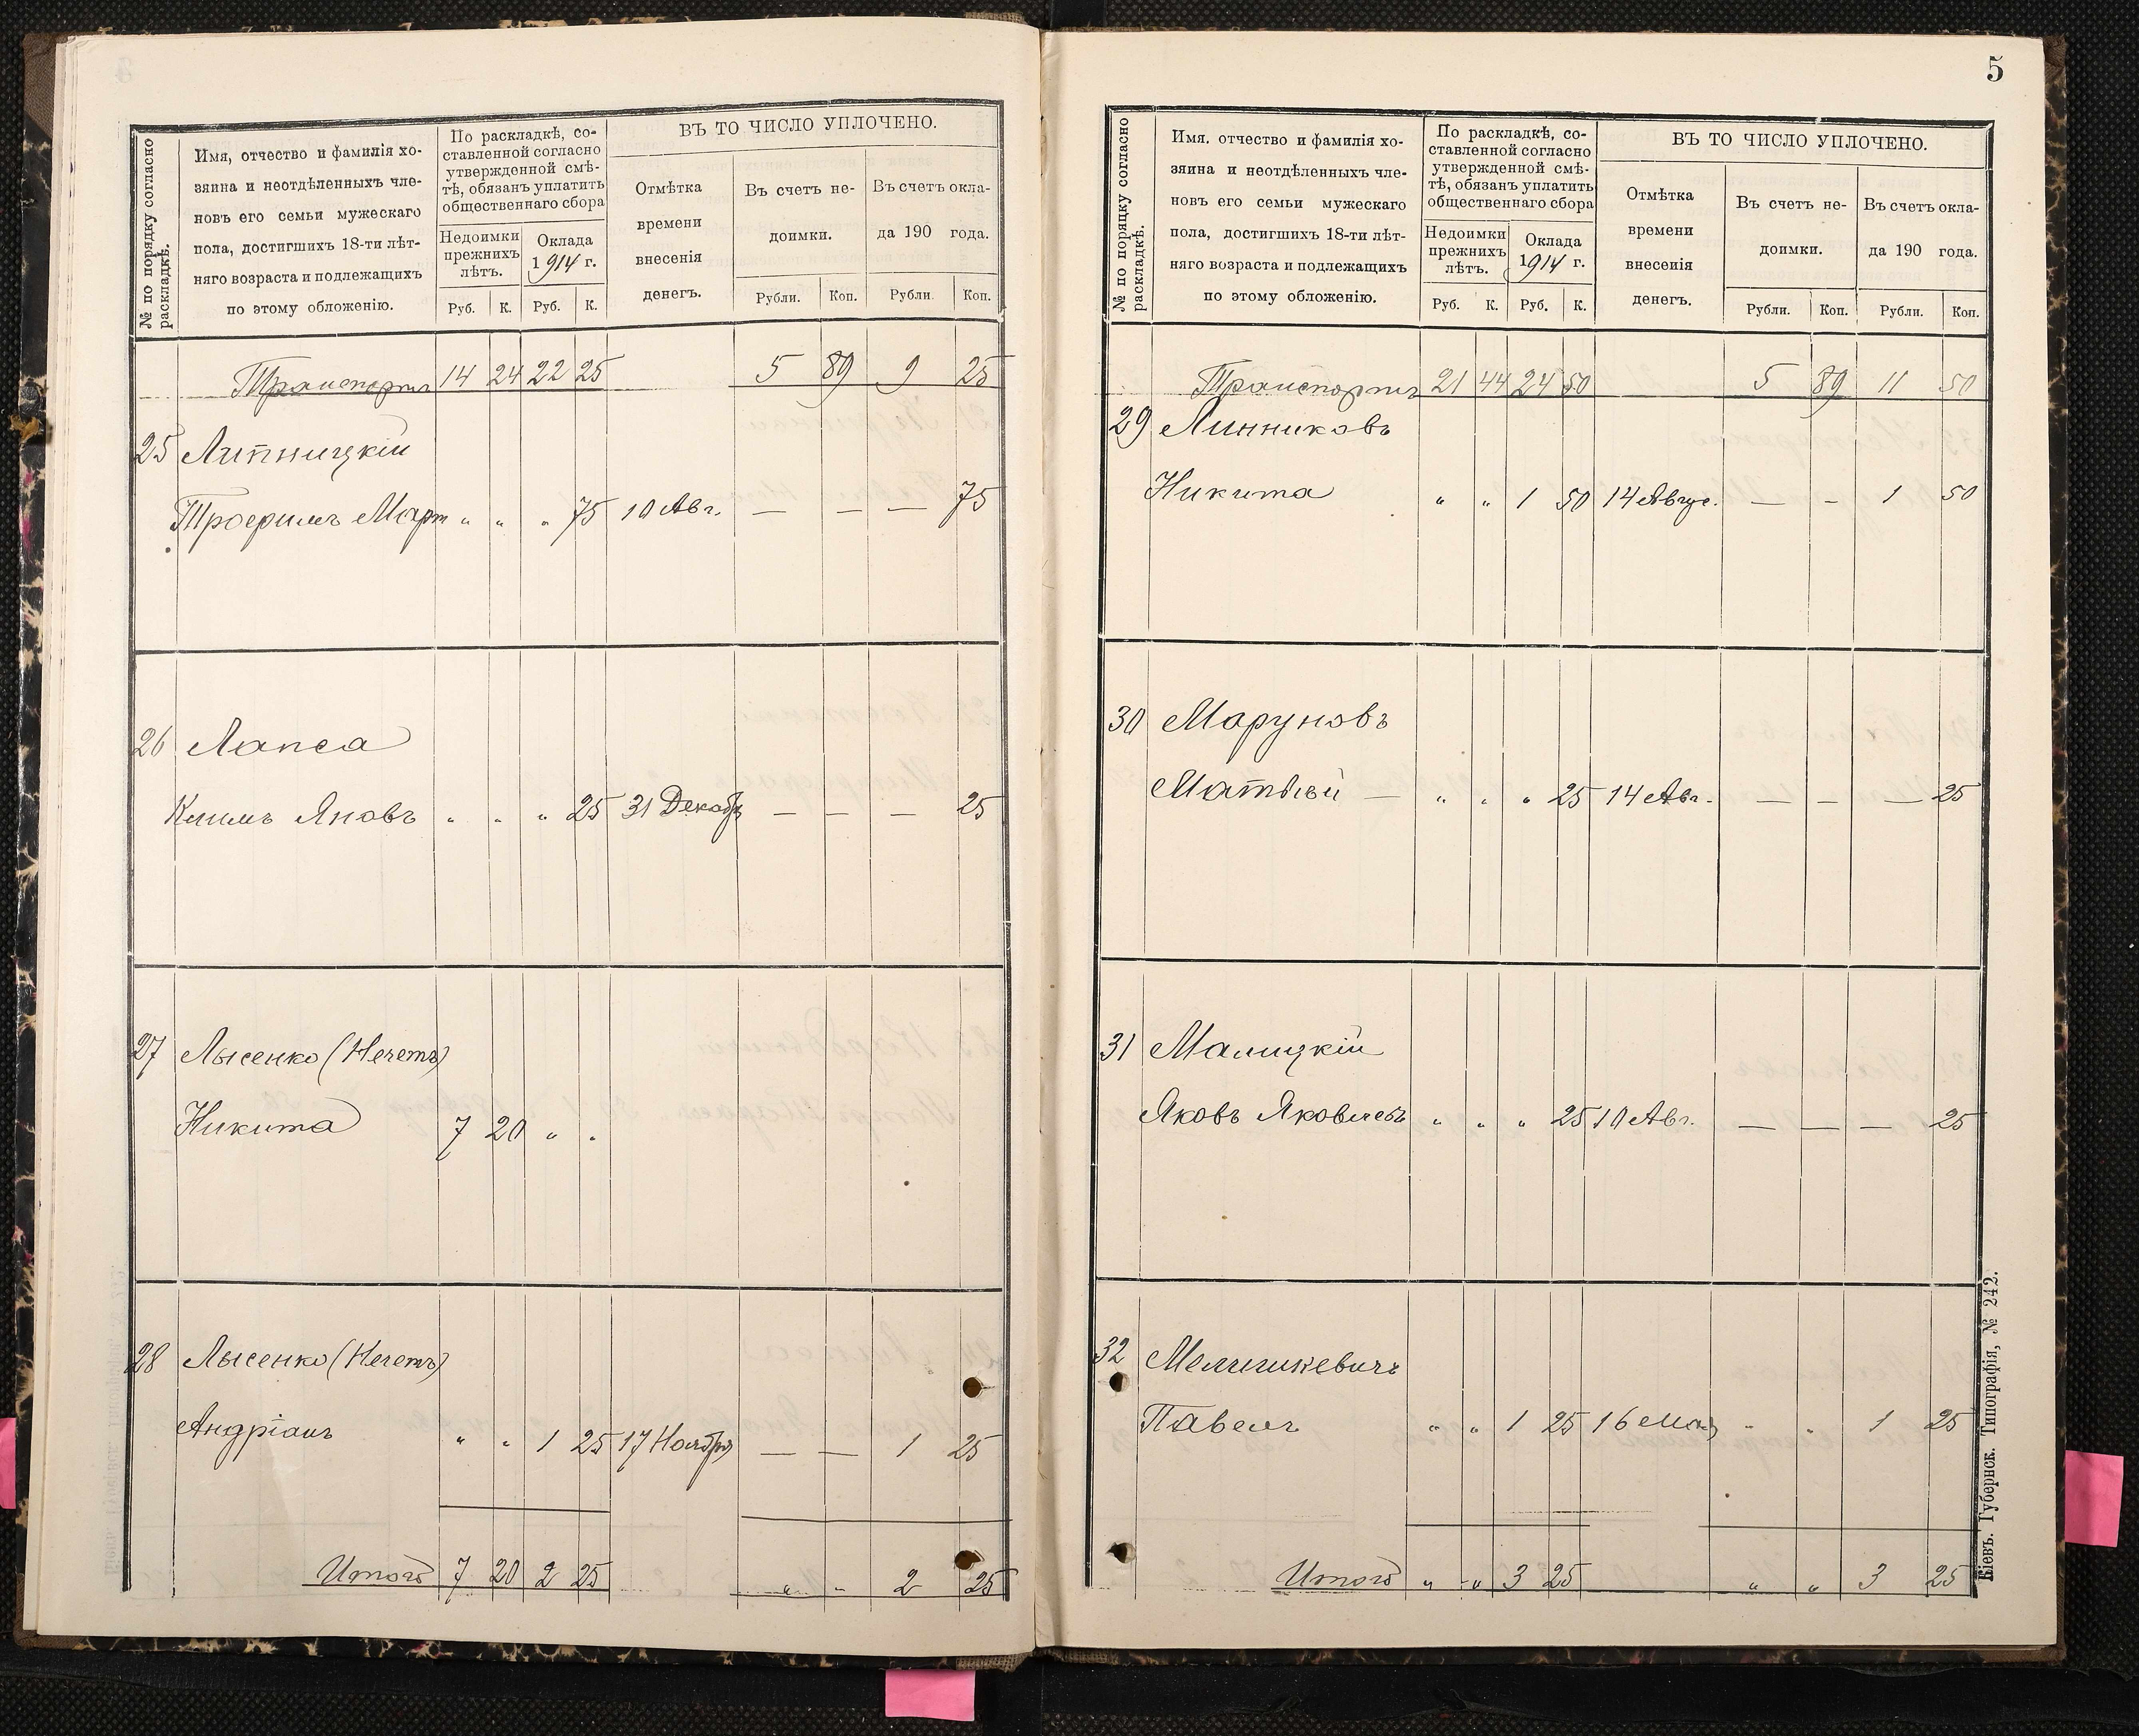 № по порядку согласно
раскладкѣ.
Имя, отчество и фамилія хо-
зяина и неотдѣленныхъ чле-
новъ его семьи мужескаго
пола, достигшихъ 18-ти лѣт-
няго возраста и подлежащихъ
по этому обложенію.
По раскладкѣ, со-
ставленной согласно
утвержденной смѣ-
тѣ, обязанъ уплатить
общественнаго сбора
Недоимки
прежнихъ
лѣтъ.
Оклада
1914 г.
Руб. К. Руб. К.
ВЪ ТО ЧИСЛО УПЛОЧЕНО.
Отмѣтка
времени
внесенія
денегъ.
Въ счетъ не-
доимки.
Въ счетъ окла-
да 190 года.
Рубли. Коп. Рубли. Коп.
Транспортъ 14 24 22 25 5 89 9 25
25 Липницкій
Трофимъ Март " " " 75 10 Авг. — — — 75
26 Лапса
Климъ Яновъ " " " 25 31 Декабр — — — 25
27 Лысенко (Нечетъ)
Никита 7 20 " "
28 Лысенко (Нечетъ)
Андріанъ " " 1 25 17 Ноября — — 1 25
Итого 7 20 2 25 " " 2 25
5
№ по порядку согласно
раскладкѣ.
Имя, отчество и фамилія хо-
зяина и неотдѣленныхъ чле-
новъ его семьи мужескаго
пола, достигшихъ 18-ти лѣт-
няго возраста и подлежащихъ
по этому обложенію.
По раскладкѣ, со-
ставленной согласно
утвержденной смѣ-
тѣ, обязанъ уплатить
общественнаго сбора
Недоимки
прежнихъ
лѣтъ.
Оклада
1914 г.
Руб. К. Руб. К.
ВЪ ТО ЧИСЛО УПЛОЧЕНО.
Отмѣтка
времени
внесенія
денегъ.
Въ счетъ не-
доимки.
Въ счетъ окла-
да 190 года.
Рубли. Коп. Рубли. Коп.
Транспортъ 21 44 24 50 5 89 11 50
29 Линниковъ
Никита " " 1 50 14 Авгус. — — 1 50
30 Маруновъ
Матвѣй — " " " 25 14 Авг. — — — 25
31 Малицкій
Яковъ Яковлевъ " " " 25 10 Авг. — — — 25
32
Павелъ " " 1 25 16 Мая " " 1 25
Итого " " 3 25 " " 3 25
Кіевъ. Губернск. Типографія, № 242.